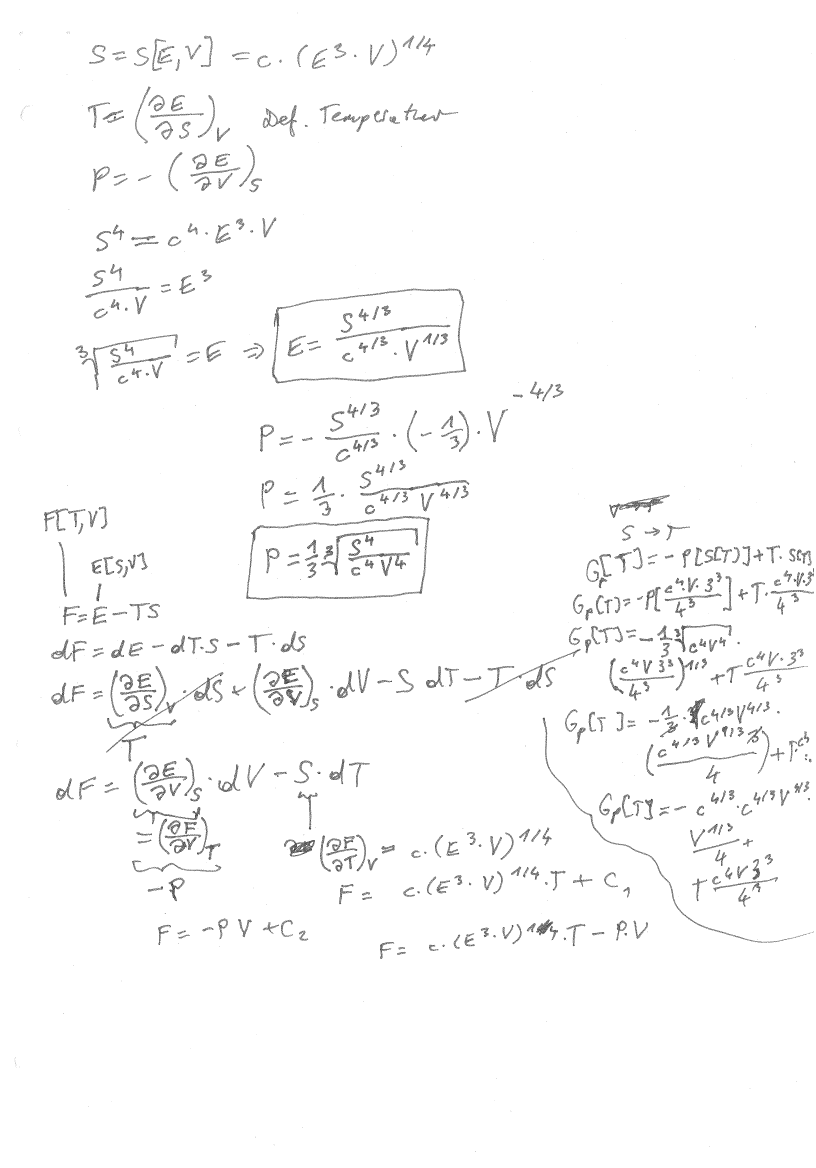 S = S[E,V] = c · (E³ · V)^1/4
T = (∂E/∂S)_V Def. Temperatur
P = − (∂E/∂V)_S
S⁴ = c⁴ · E³ · V
S⁴/(c⁴ · V) = E³
∛(S⁴/(c⁴ · V)) = E ⇒ E = S^4/3/(c^4/3 · V^1/3)
P = − S^4/3/c^4/3 · (−1/3) · V^−4/3
P = 1/3 · S^4/3/(c^4/3 V^4/3)
P = 1/3 ∛(S⁴/(c⁴V⁴))
F[T,V]
E[S,V]
F = E − TS
dF = dE − dT·S − T·dS
dF = (∂E/∂S)_V · dS + (∂E/∂V)_S · dV − S dT − T · dS
T
dF = (∂E/∂V)_S · dV − S · dT
= (∂F/∂V)_T
−P
(∂F/∂T)_V = c · (E³ · V)^1/4
F = c · (E³ · V)^1/4 · T + C₁
F = −PV + C₂
F = c · (E³ · V)^1/4 · T − P·V
S → T
G[T] = −P[S(T)] + T · S[T]
G_P[T] = −P[c⁴·V·3³/4³] + T · c⁴·V·3³/4³
G_P[T] = −1/3 ∛(c⁴V⁴) ·
(c⁴V3³/4³)^1/3 + T c⁴V·3³/4³
G_P[T] = −1/3 · c^4/3 V^4/3 ·
(c^4/3 V^1/3 3/4) + T · c⁴
G_P[T] = − c^4/3 · c^4/3 V^4/3 ·
V^1/3/4 +
T c⁴V3³/4³